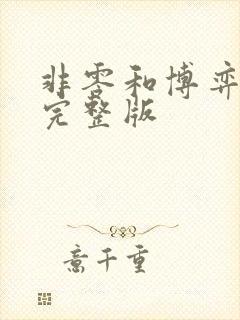 非零和博弈
完整版
意千重